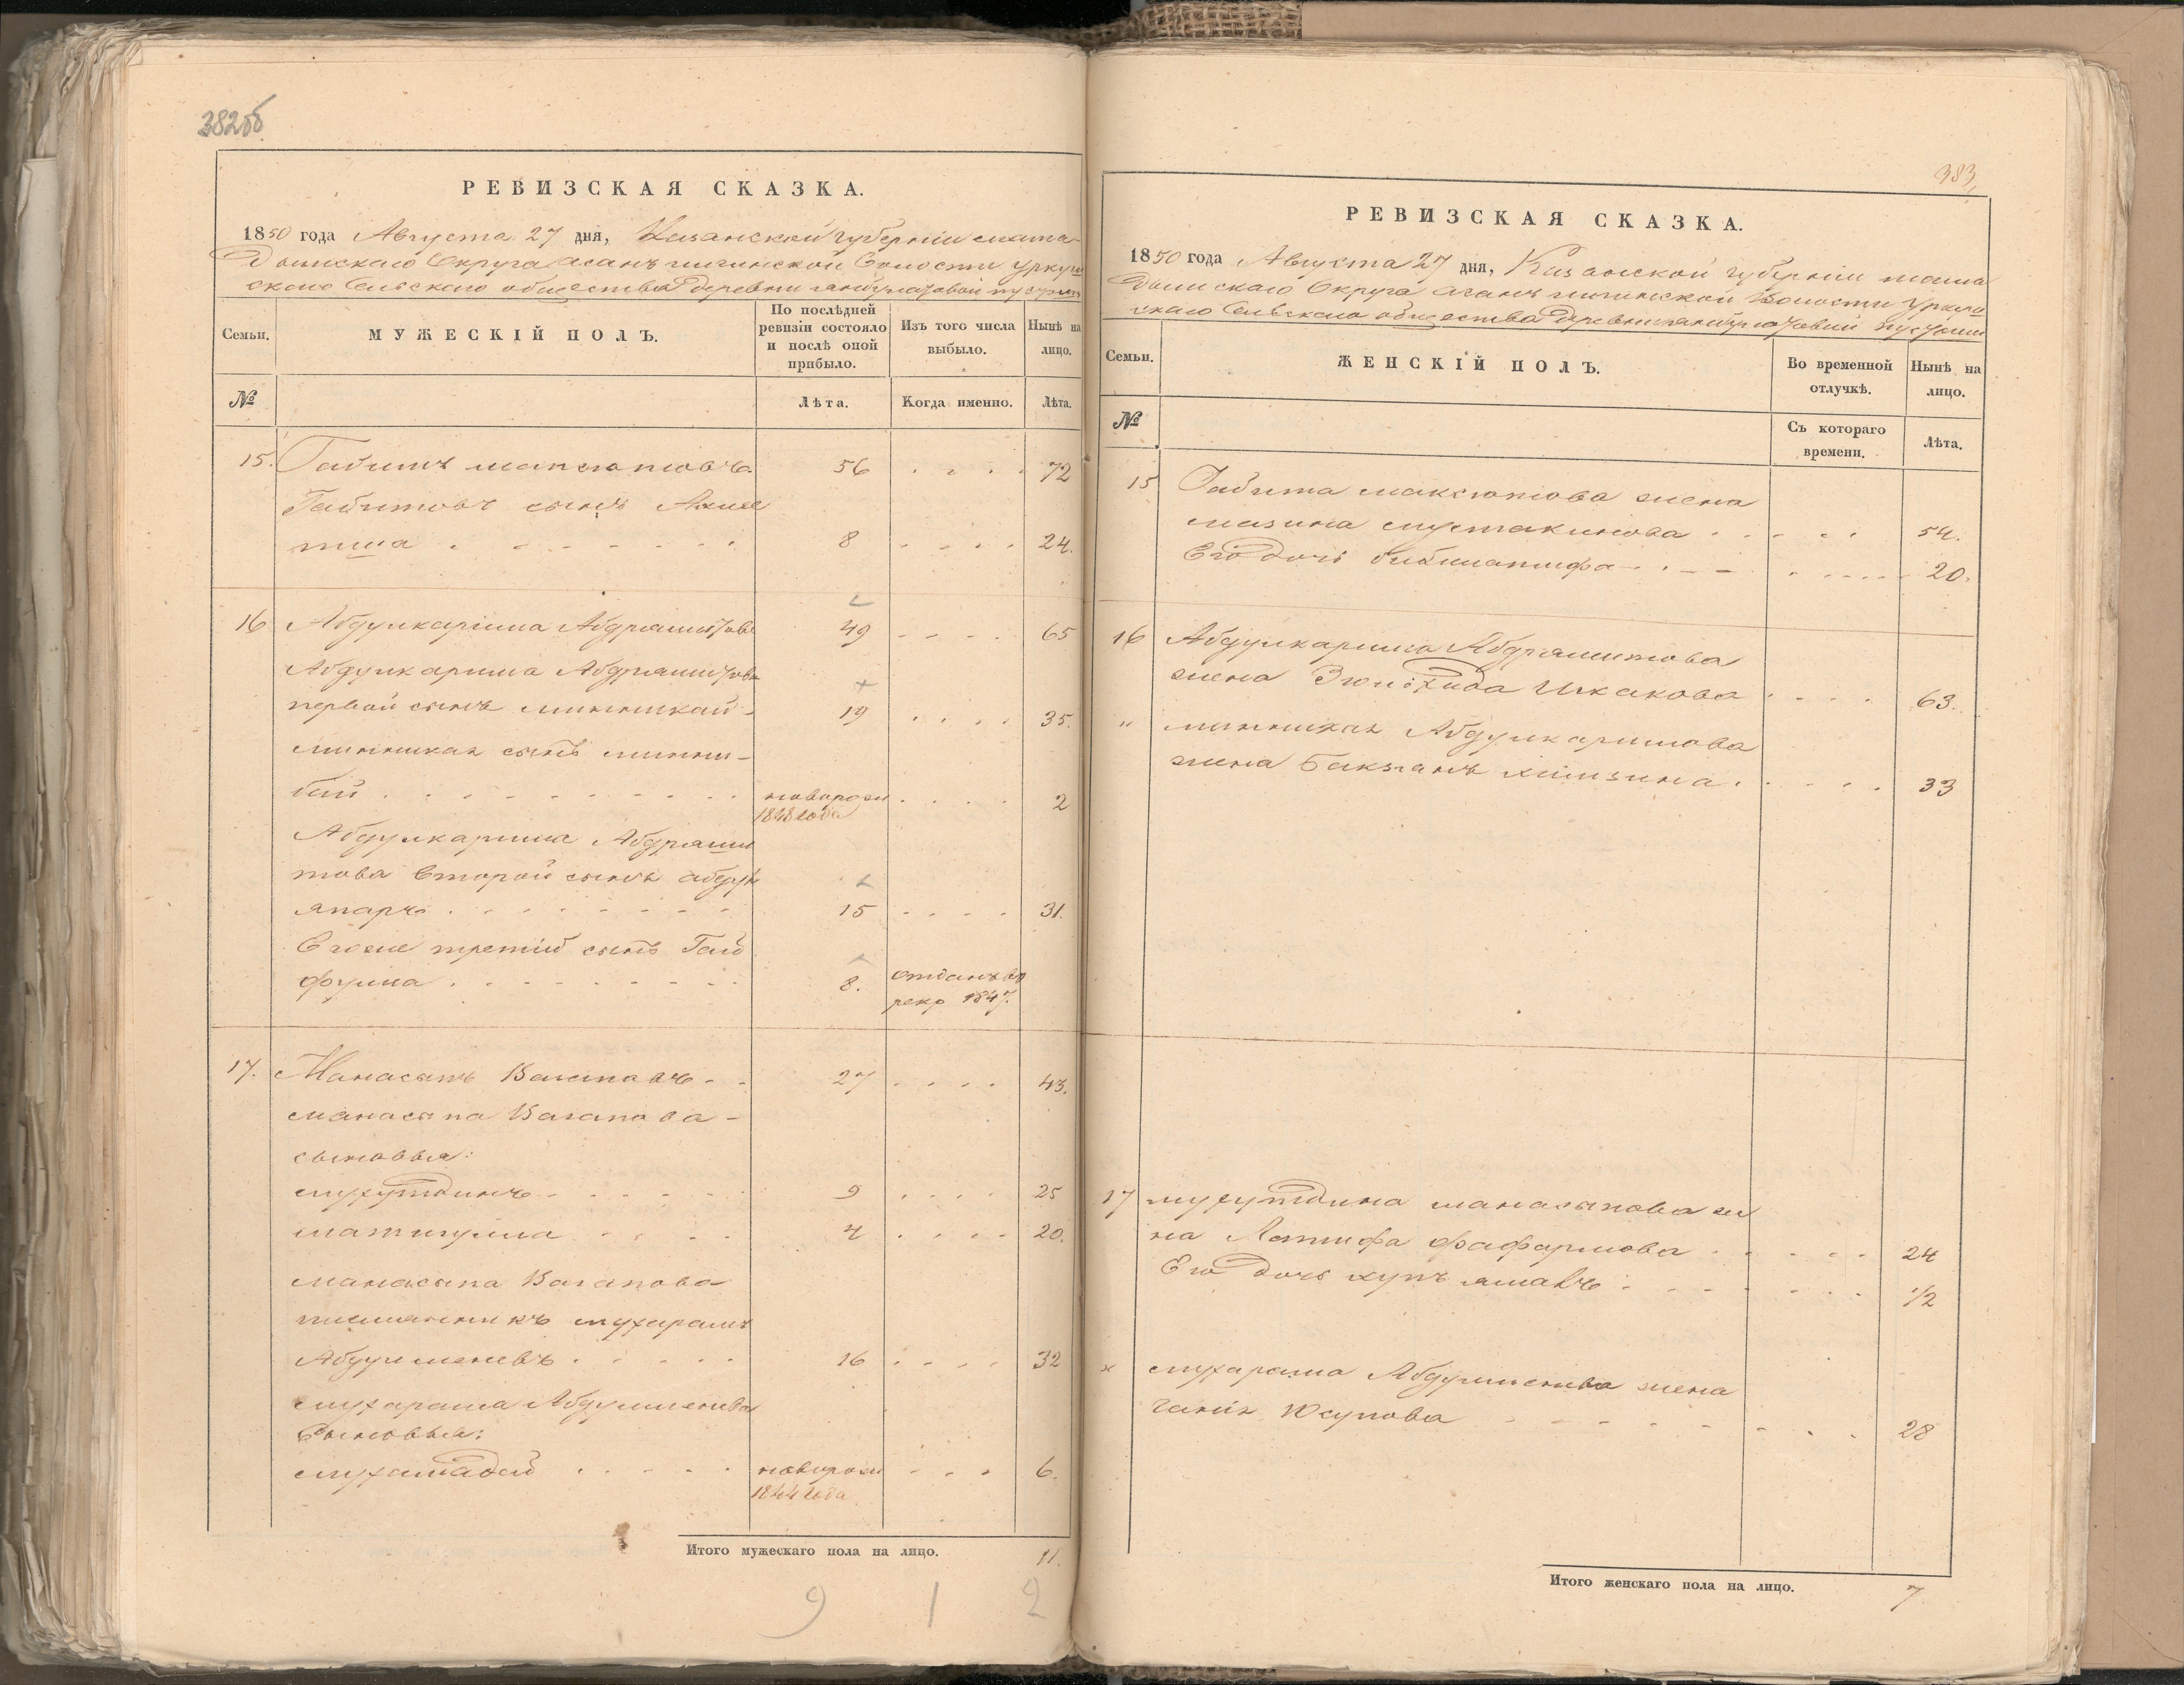 382об
РЕВИЗСКАЯ СКАЗКА.
1850 года Августа 27 дня, Казанской губерніи мама
дышскаго Округа асанъ Волости Уркуш
скаго Сельскаго общества деревни
Семьи.
МУЖЕСКІЙ ПОЛЪ.
По послѣдней
ревизіи состояло
и послѣ оной
прибыло.
Изъ того числа
выбыло.
Нынѣ на
лицо.
№
Лѣта.
Когда именно.
Лѣта.
15. Габитъ максютовъ 56 72
Габитовъ сынъ
8 24.
16 Абдулкарима Абдрашитовъ 49 65
Абдулкарима Абдрашитова
первой сынъ миннихай 19 35.
миннихая сынъ минни-
бай новорож 2
1848 года
Абдулкарима Абдраши
това второй сынъ абдул
япаръ 15 31.
Егоже третій сынъ Гай
фулла 8. отданъ въ
рекр 1847.
17. Манасыпъ Вагаповъ 27 43.
манасыпа Вагапова
сыновья:
мухутдинъ 9 25
матигулла 4 20.
манасыпа Вагапова
племянникъ мухарамъ
Абдулменевъ 16 32
мухарама Абдулменева
Сыновья:
мухамадей новорож 6.
1844 года
Итого мужескаго пола на лицо. 11.
9 1 2
383,
РЕВИЗСКАЯ СКАЗКА.
1850 года Августа 27 дня, Казанской губерніи мама
дышскаго Округа асанъ Волости Уркуш
скаго Сельскаго общества деревни
Семьи.
ЖЕНСКІЙ ПОЛЪ.
Во временной
отлучкѣ.
Нынѣ на
лицо.
№
Съ котораго
времени.
Лѣта.
15 Габита максютова жена
мазина мустакимова 54.
Его дочь бибилатифа 20.
16 Абдулкарима Абдрашитова
жена Искакова 63.
" миннихая Абдулкаримова
жена 33
17 мухутдина манасыпова же
на Латифа 24
Его дочь 1/2
х мухарама Абдулменева жена
Юсупова 28
Итого женскаго пола на лицо. 7